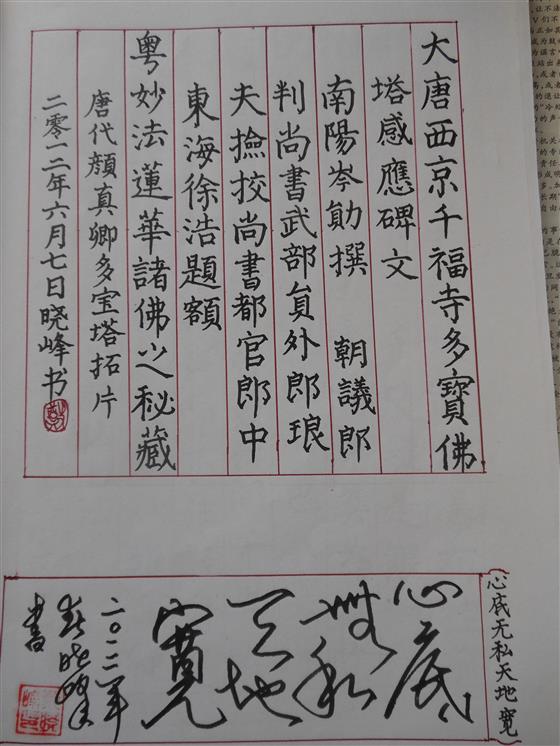 大唐西京千福寺多寶佛
塔感應碑文
南陽岑勛撰 朝議郎
判尚書武部員外郎琅
夫撿挍尚書都官郎中
東海徐浩題額
粤妙法蓮華諸佛之秘藏
唐代顔真卿多宝塔拓片
二零二二年六月七日晓峰书
(心底无私天地宽)
心底
無私
天地
寬
二〇二二年
晓峰
書